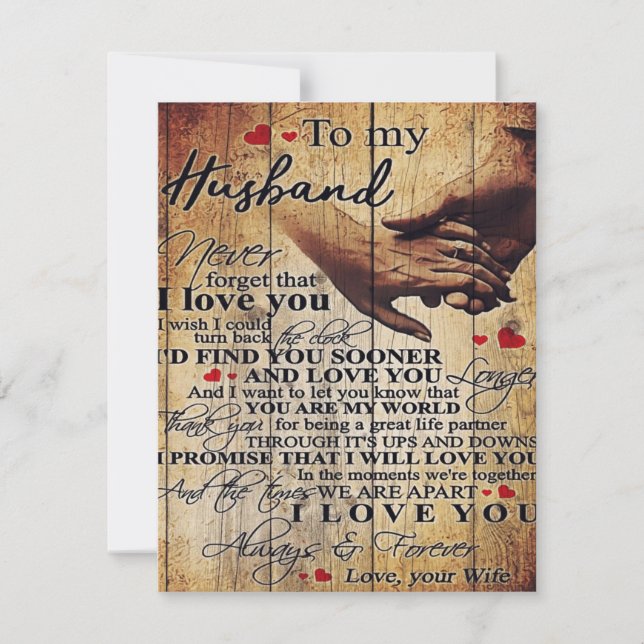 To my
Husband
Never
forget that
I love you
I wish I could
turn back the clock
I'D FIND YOU SOONER
AND LOVE YOU Longer
And I want to let you know that
YOU ARE MY WORLD
Thank you for being a great life partner
THROUGH IT'S UPS AND DOWNS
I PROMISE THAT I WILL LOVE YOU
In the moments we're together
And the times WE ARE APART
I LOVE YOU
Always & Forever
Love, your Wife